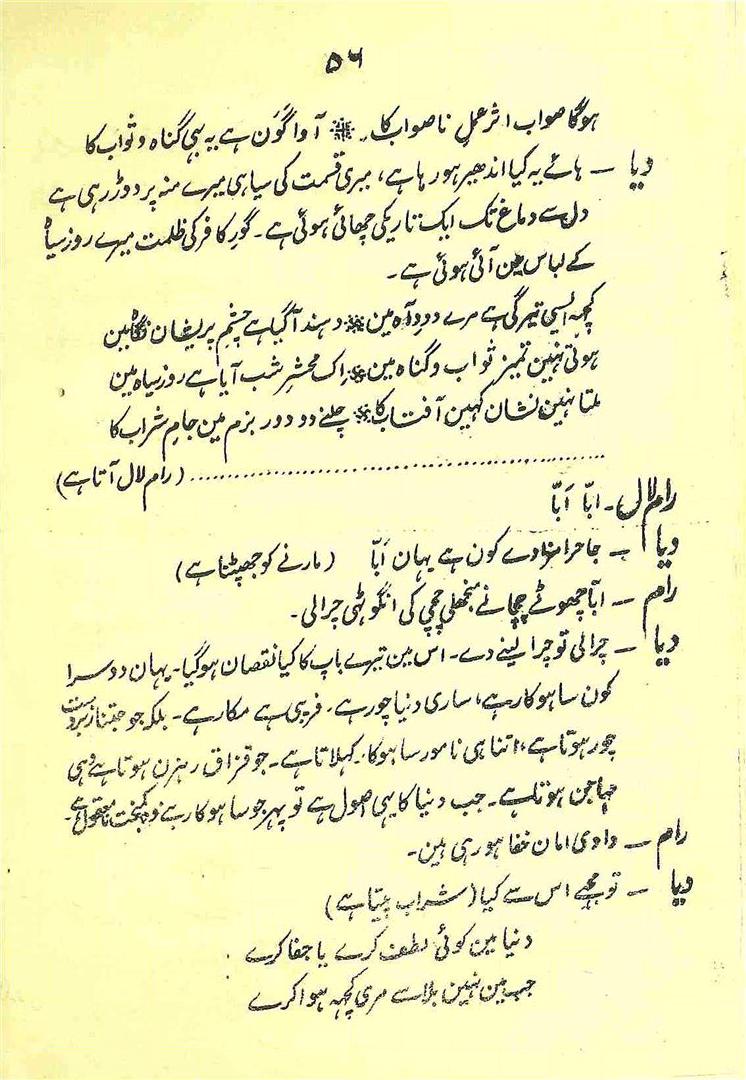 ۵۶
ہوگا صواب اثر عمل ناصواب کا ۔ ٭ آواگَوَن ہے یہ ہی گناہ و ثواب کا
دیا ۔ ہائے یہ کیا اندھیر ہو رہا ہے، میری قسمت کی سیاہی میرے منہ پر دوڑ رہی ہے
دل سے دماغ تک ایک تاریکی چھائی ہوئی ہے ۔ گورِ کافر کی ظلمت میرے روز سیاہ
کے لباس مین آئی ہوئی ہے ۔
کچہہ ایسی تیرگی ہے مرے دودِ آہ مین ٭ دہند آگیا ہے چشم پریشان نگاہ مین
ہوتی نہین تمیز ثواب و گناہ مین ٭ اِک محشرِ شب آیا ہے روز سیاہ مین
ملتا نہین نشان کہین آفتاب کا ٭ چلنے دو دور بزم مین جام شراب کا
(رام لال آتا ہے)
رام لال ۔ ابّا اَبّا
دیا ۔ جا حرامزادے کون ہے یہان اَبّا (مارنے کو جھپٹتا ہے)
رام ۔ ابّا چھوٹے چچا نے منجھلی چچی کی انگوٹہی چرالی ۔
دیا ۔ چرالی تو چرا لینے دے ۔ اس مین تیرے باپ کا کیا نقصان ہوگیا ۔ یہان دوسرا
کون ساہوکار ہے، ساری دنیا چور ہے ۔ فریبی ہے مکار ہے ۔ بلکہ جو جتنا زبردست
چور ہوتا ہے، اتنا ہی نامور ساہوکار کہلاتا ہے ۔ جو قزاق رہزن ہوتا ہے وہی
مہاجن ہوتا ہے ۔ جب دنیا کا یہی اصول ہے تو پہر جو ساہوکار ہے وہ کمبخت نامعقول ہے ۔
رام ۔ دادی امان خفا ہو رہی ہین ۔
دیا ۔ تو مجھے اس سے کیا (شراب پیتا ہے)
دنیا مین کوئی لطف کرے یا جفا کرے
جب مین نہین بلا سے مری کچہہ ہوا کرے